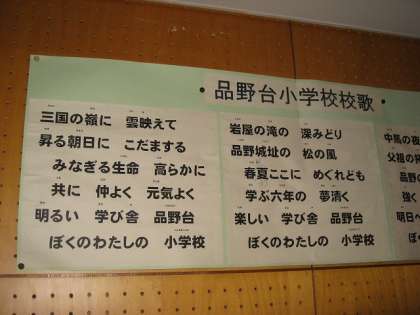 品野台小学校校歌
三国の嶺に 雲映えて
昇る朝日に こだまする
みなぎる生命 高らかに
共に 仲よく 元気よく
明るい 学び舎 品野台
ぼくのわたしの 小学校
岩屋の滝の 深みどり
品野城址の 松の風
春夏ここに めぐれども
学ぶ六年の 夢清く
楽しい 学び舎 品野台
ぼくのわたしの 小学校
中馬の夜
父祖の
品野
強く
明日へ
ぼく